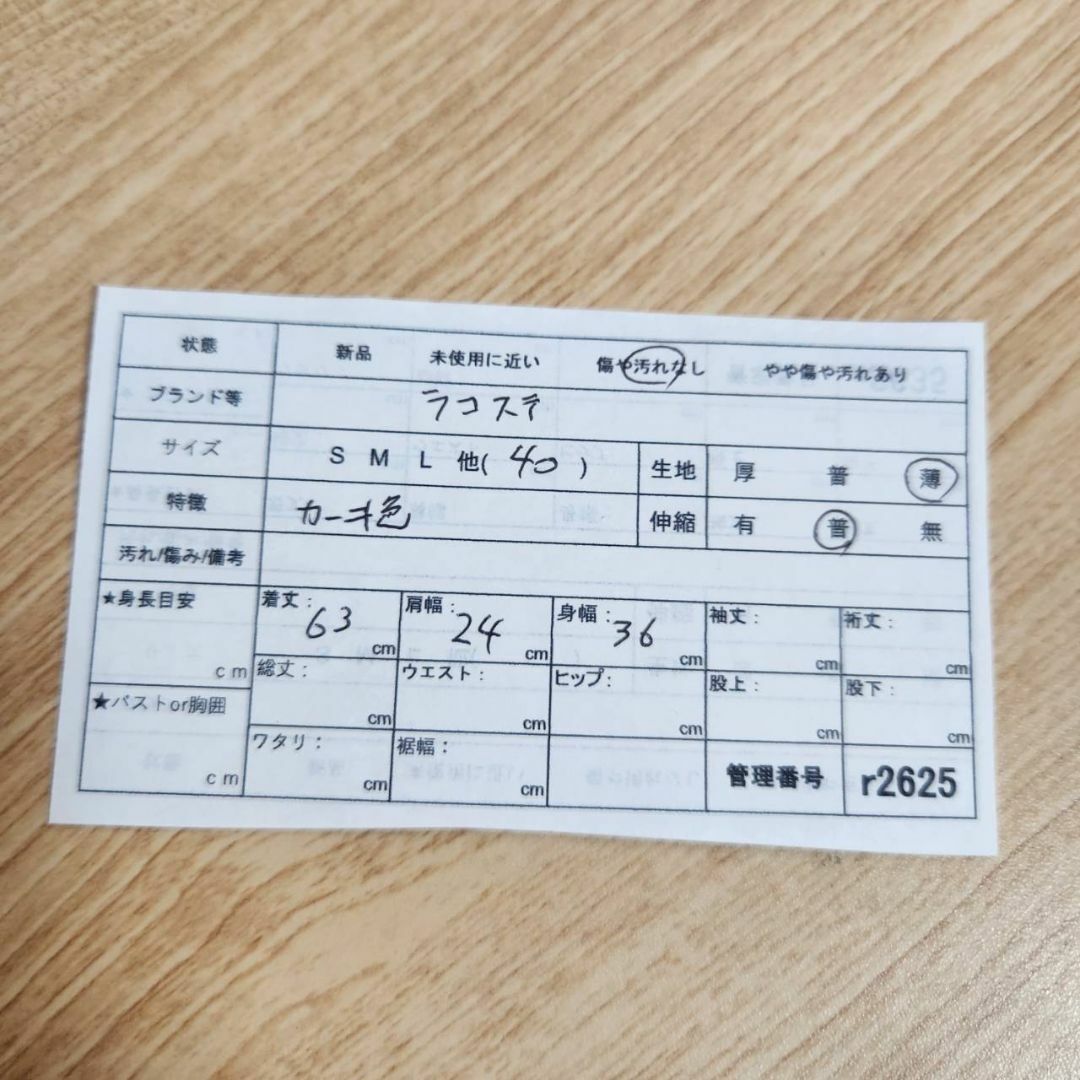 状態 新品 未使用に近い 傷や汚れなし やや傷や汚れあり
ブランド等 ラコステ
サイズ S M L 他( 40 ) 生地 厚 普 薄
特徴 カーキ色 伸縮 有 普 無
汚れ/傷み/備考
★身長目安 cm 着丈: 63 cm 肩幅: 24 cm 身幅: 36 cm 袖丈: cm 裄丈: cm
総丈: cm ウエスト: cm ヒップ: cm 股上: cm 股下: cm
★バストor胸囲 cm ワタリ: cm 裾幅: cm 管理番号 r2625